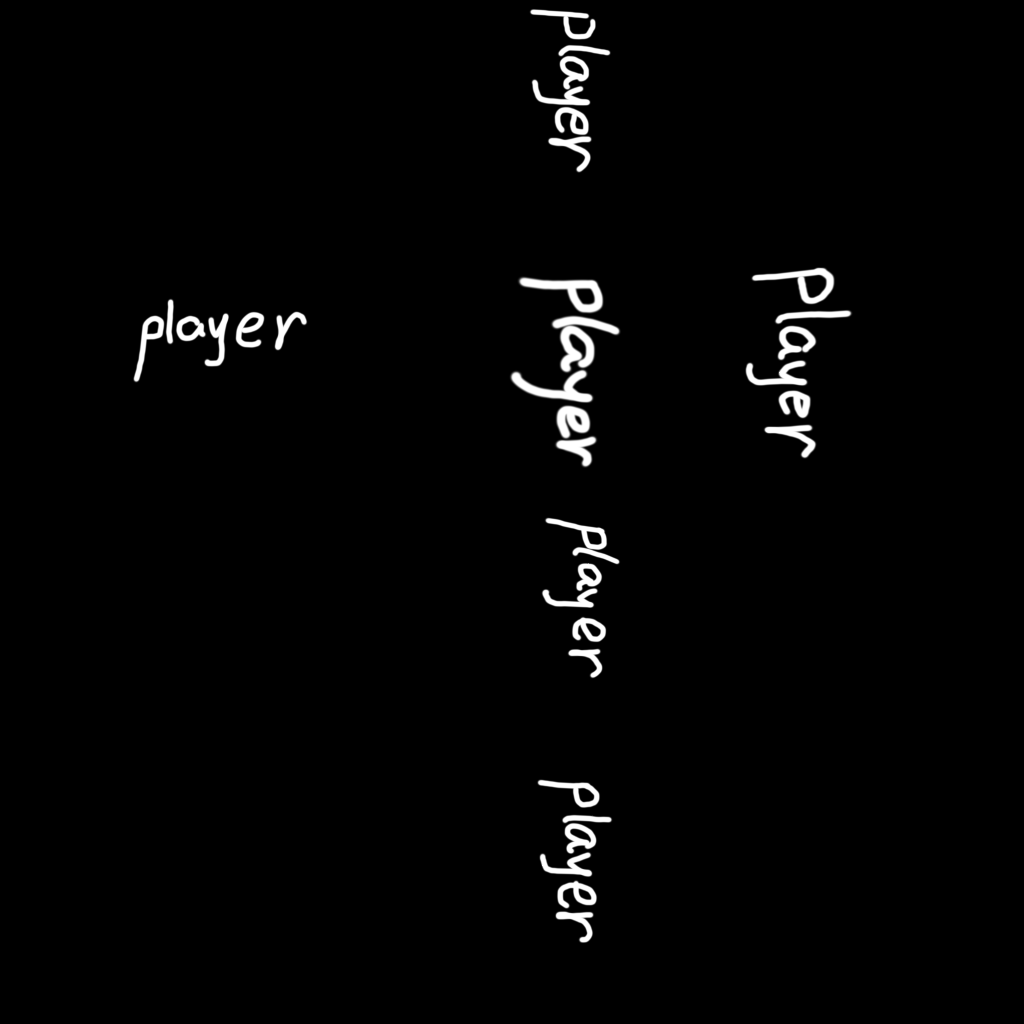 player
player
player
player
player
player